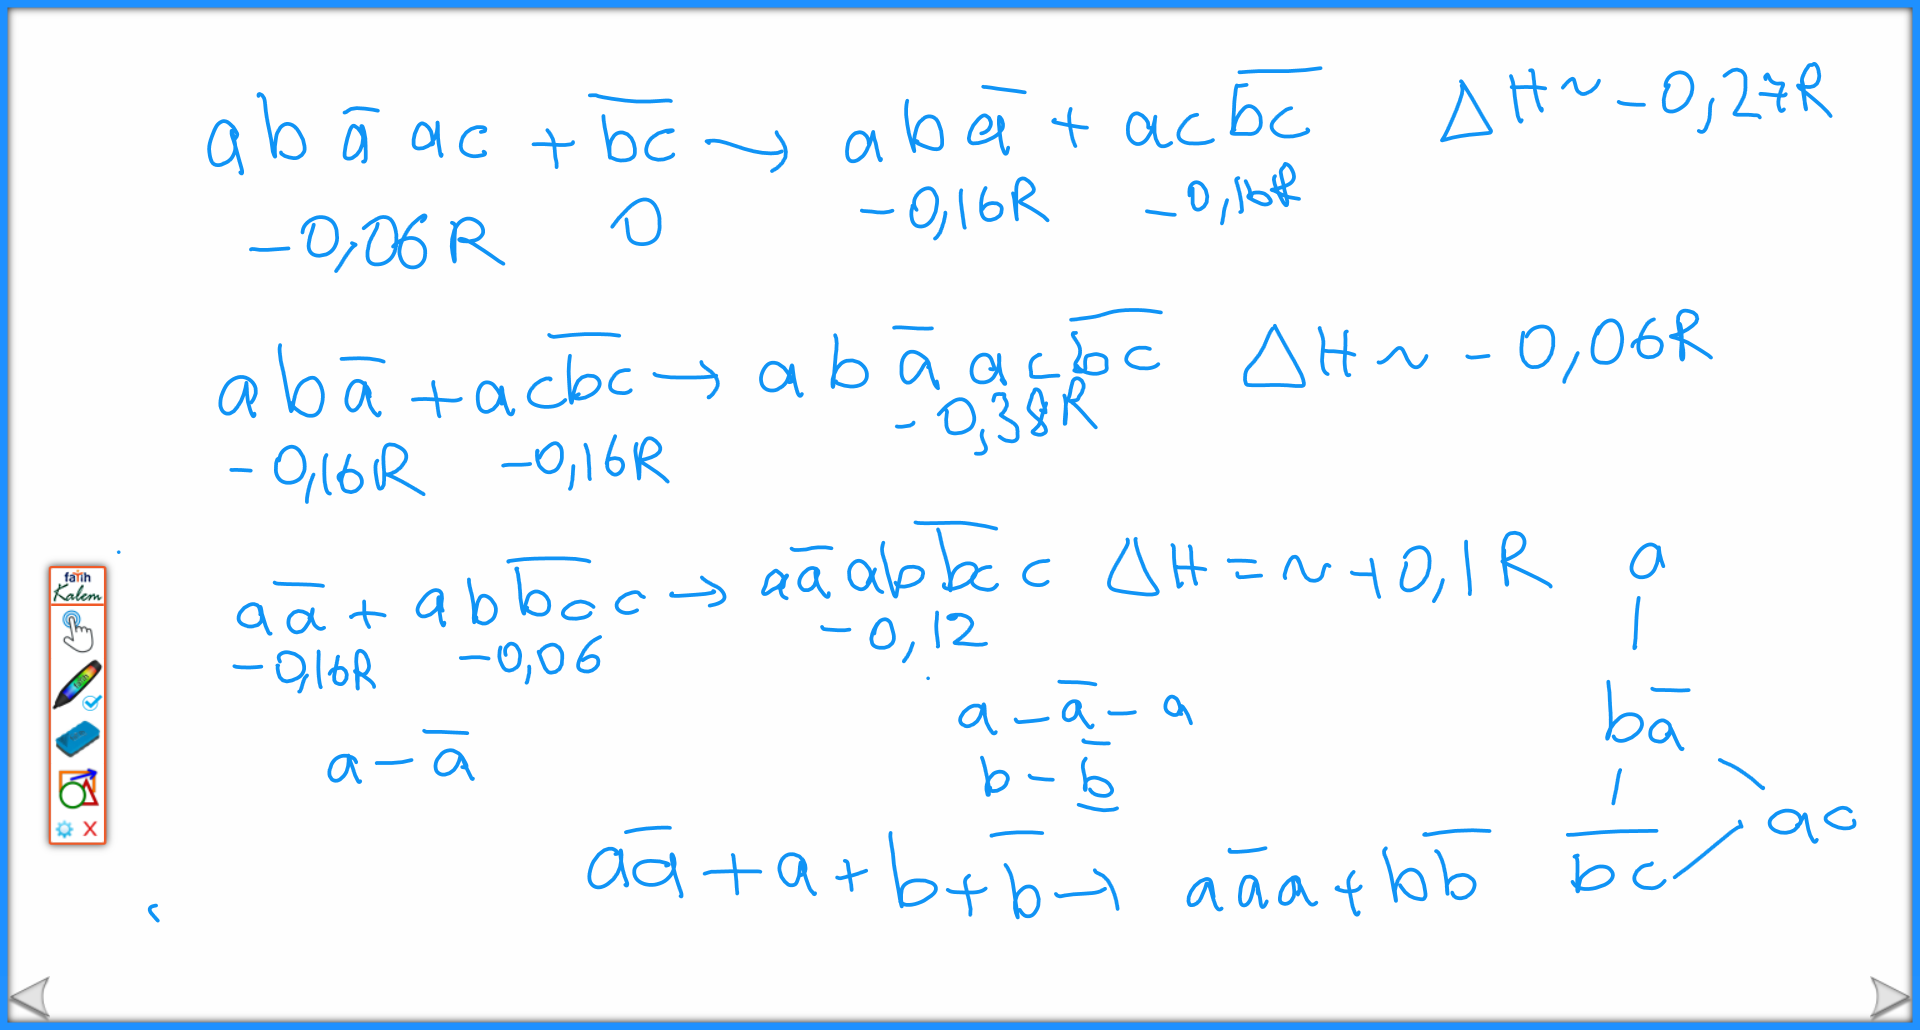 a b a̅ ac + b̅c̅ → a b a̅ + ac b̅c̅ ΔH ~ -0,27R
-0,06R 0 -0,16R -0,16R
a b a̅ + ac b̅c̅ → a b a̅ ac b̅c̅ ΔH ~ -0,06R
-0,16R -0,16R -0,38R
a a̅ + ab b̅c̅ c → a a̅ ab b̅c̅ c ΔH = ~ +0,1R
-0,16R -0,06 -0,12
a - a̅
a - a̅ - a
b - b̅
a a̅ + a + b + b̅ → a a̅ a + b b̅
a
b a̅
b̅c̅
ac
fatih
Kalem